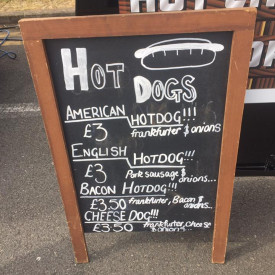 HOT
DOGS
AMERICAN
HOTDOG!!!
£3 frankfurter & onions
ENGLISH
HOTDOG!!!
£3 Pork sausage & onions...
BACON HOTDOG!!!
£3.50 frankfurter, Bacon & onions...
CHEESE DOG!!!
£3.50 frankfurter, cheese & onions...